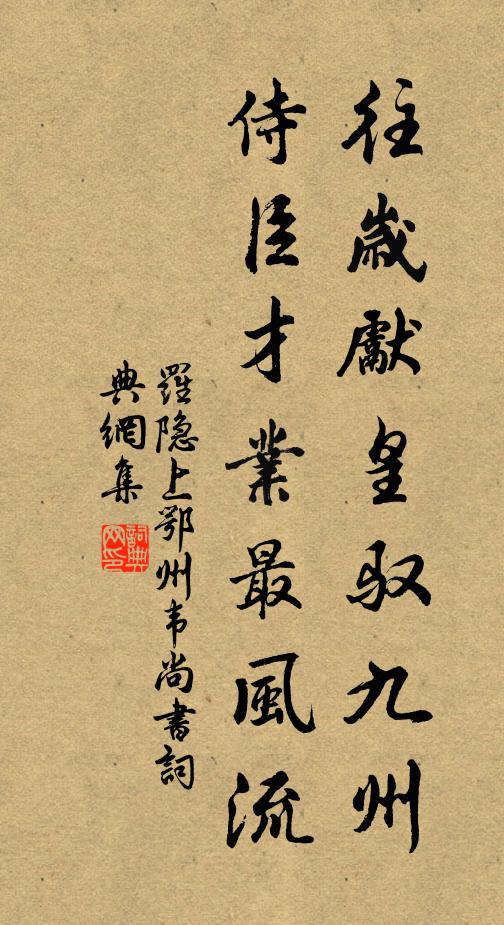 往歲獻皇馭九州
侍臣才業最風流
羅隐上鄂州韦尚書詞
典網集
詞典
网印